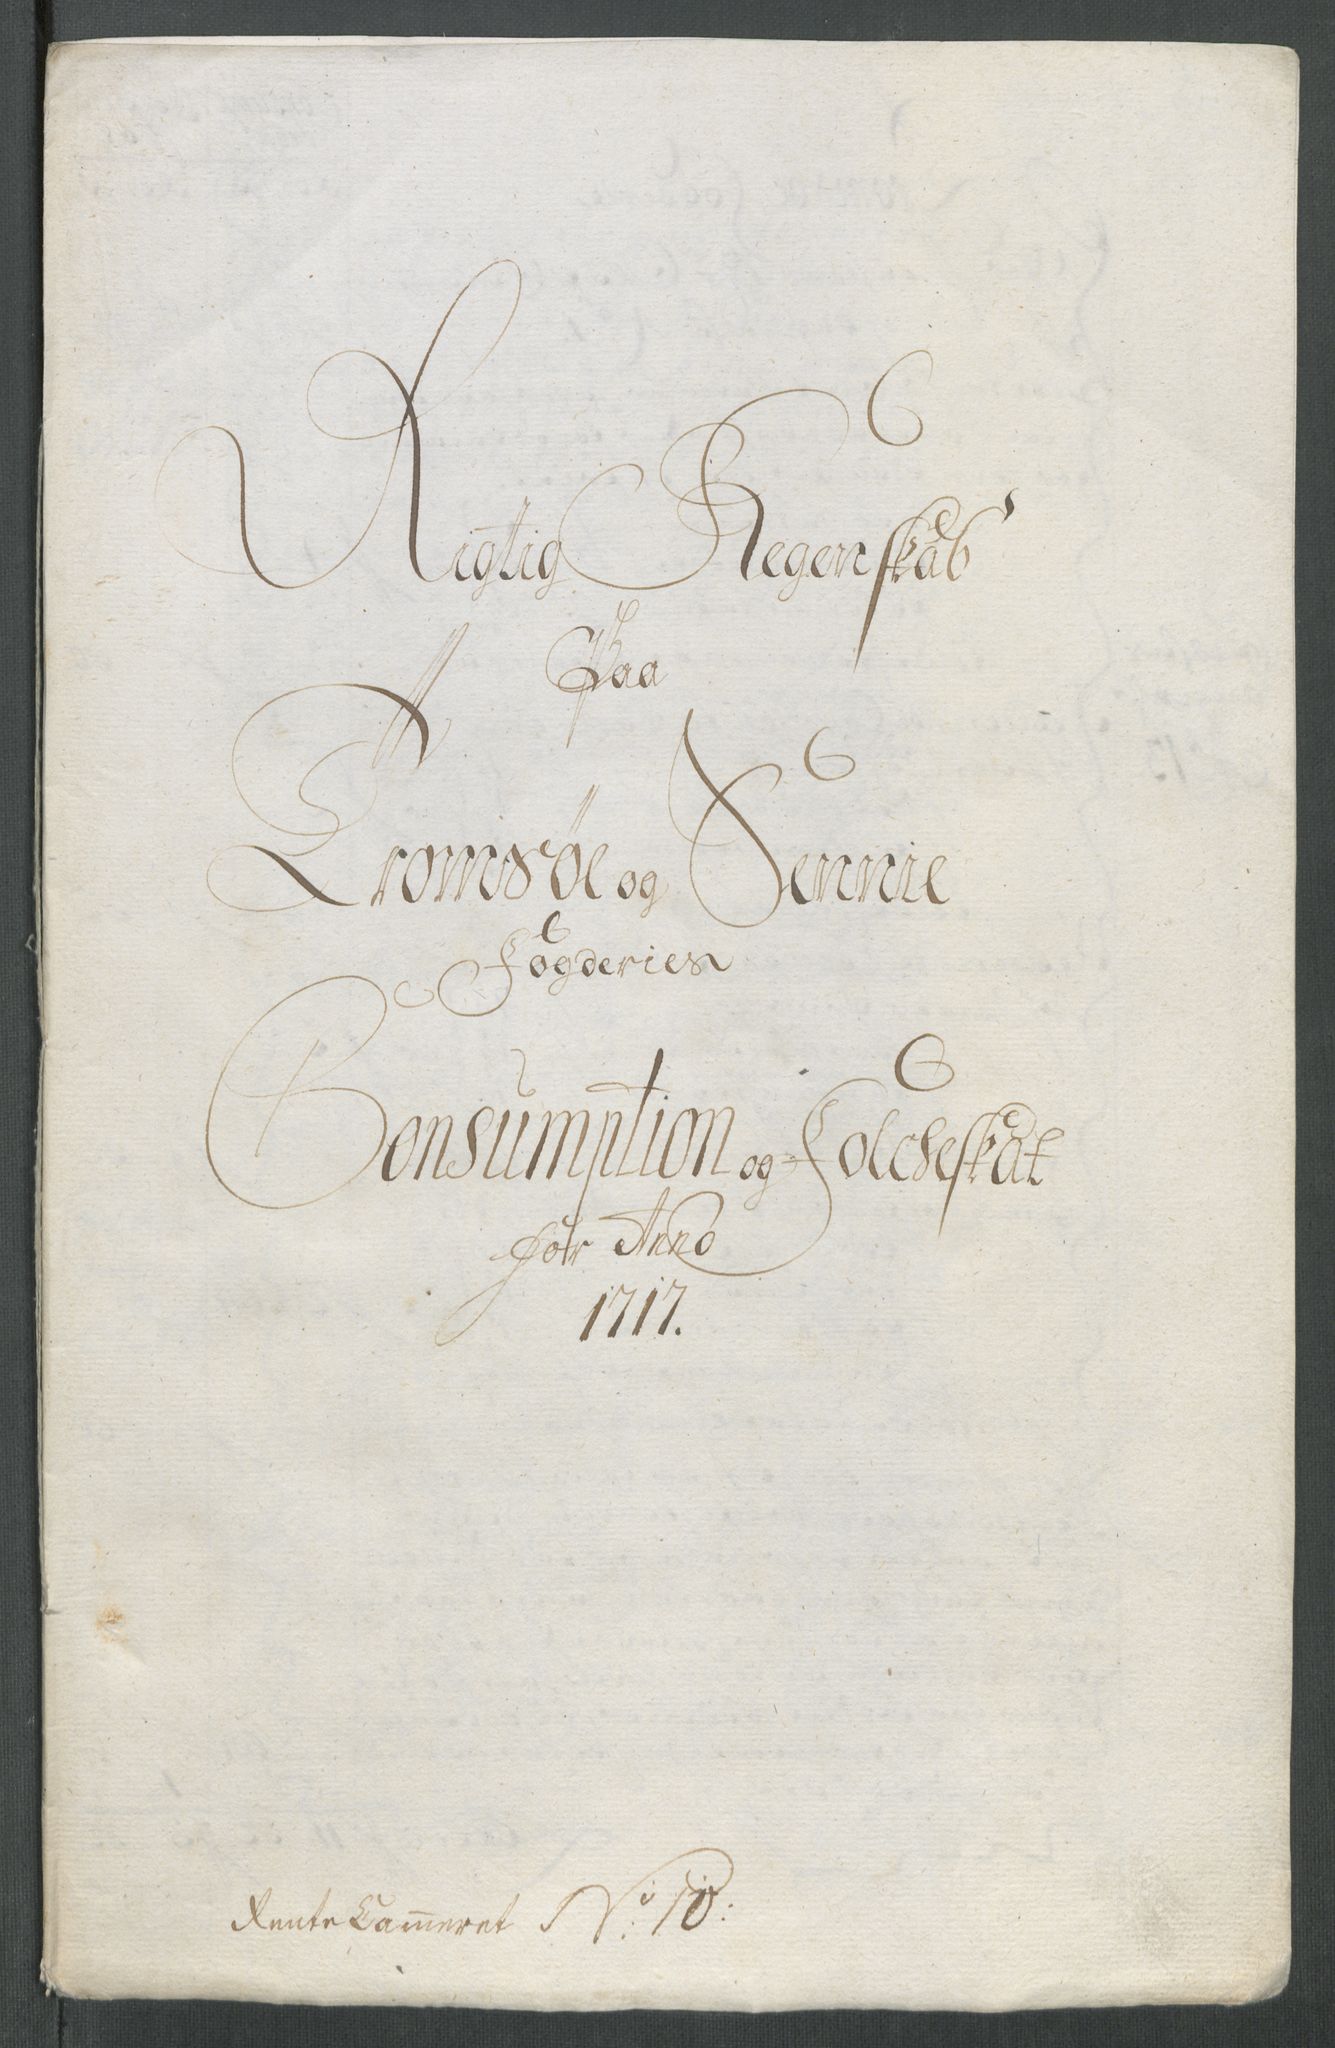 Rigtig Regenskab
Paa
Tromsøe og Sennie
Fogderies
Consumption og Folcheskat
for Anno
1717.
Rente Cam̅eret No: 10: